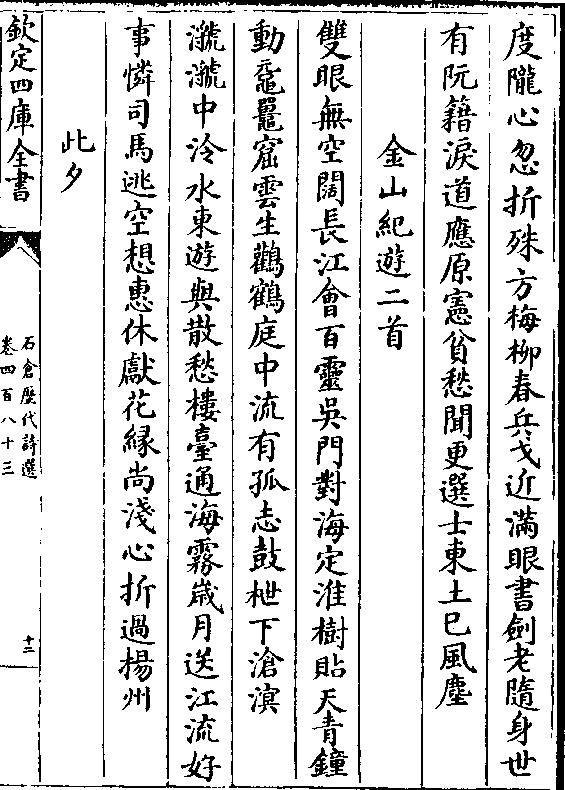 度隴心忽折殊方梅柳春兵戈近滿眼書劍老隨身世
有阮籍淚道應原憲貧愁聞更選士東土已風塵
金山紀遊二首
雙眼無空闊長江會百靈吳門對海定淮樹貼天青鐘
動黿鼉窟雲生鸛鶴庭中流有孤志鼓枻下滄溟
瀧瀧中泠水東遊與散愁樓臺通海霧歲月送江流好
事憐司馬逃空想惠休獻花緣尚淺心折過揚州
此夕
欽定四庫全書
石倉歷代詩選
卷四百八十三
十二